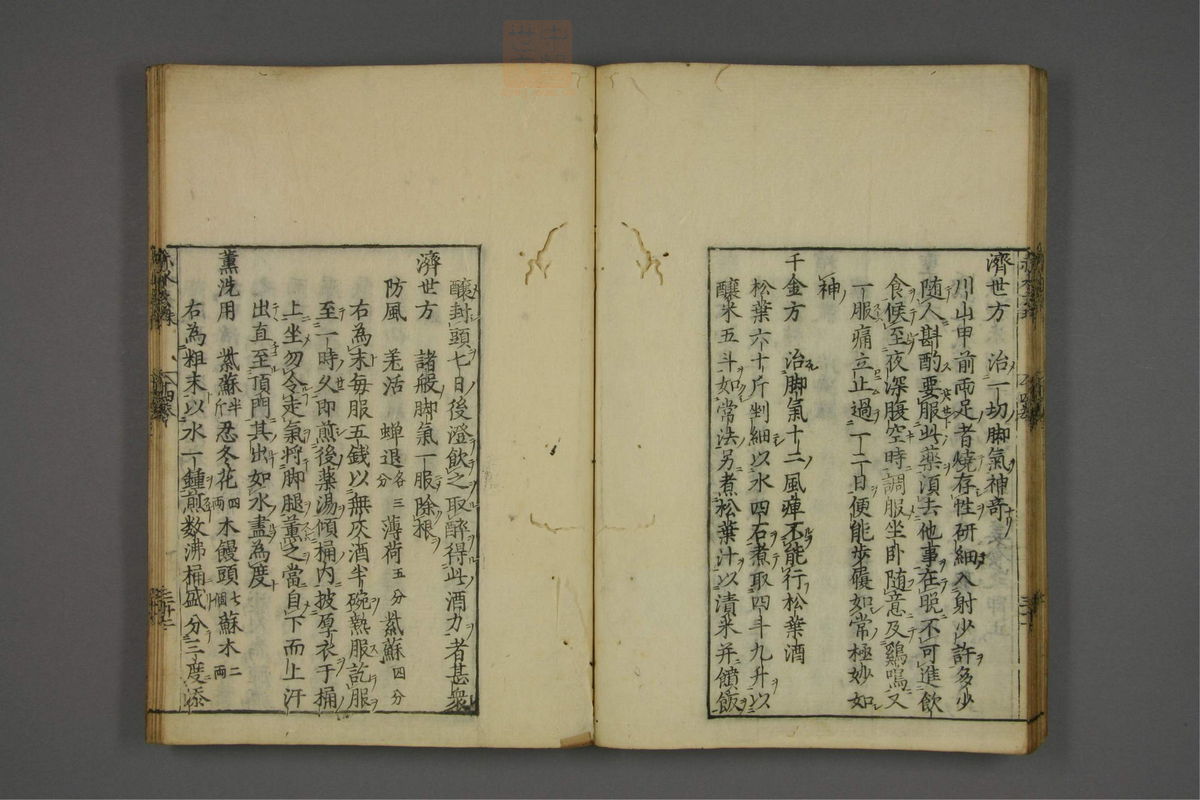 濟世方　治一切脚氣神奇
川山甲前両足者燒存性研細入射少許多少
随人斟酌要服此藥須去他事在晩不可進飲
食候至夜深腹空時調服坐卧随意及鷄鳴又
一服痛立止過一二日便能歩履如常極妙如
神
千金方　治脚氣十二風痺不能行松葉酒
松葉六十斤剉細以水四石煮取四斗九升以
釀米五斗如常法另煮松葉汁以漬米并饙飯
釀封頭七日後澄飲之取醉得此酒力者甚衆
濟世方　諸般脚氣一服除根
防風　羌活　蝉退各三分　薄荷五分　紫蘇四分
右為末毎服五錢以無灰酒半碗熱服訖服
至一時久即煎後藥湯傾桶内披厚衣于桶
上坐勿令走氣将脚腿薫之當自下而上汗
出直至頂門其出如水盡為度
薫洗用　紫蘇半斤　忍冬花四両　木饅頭七個　蘇木二両
右為粗末以水一鍾煎数沸桶盛分三度添